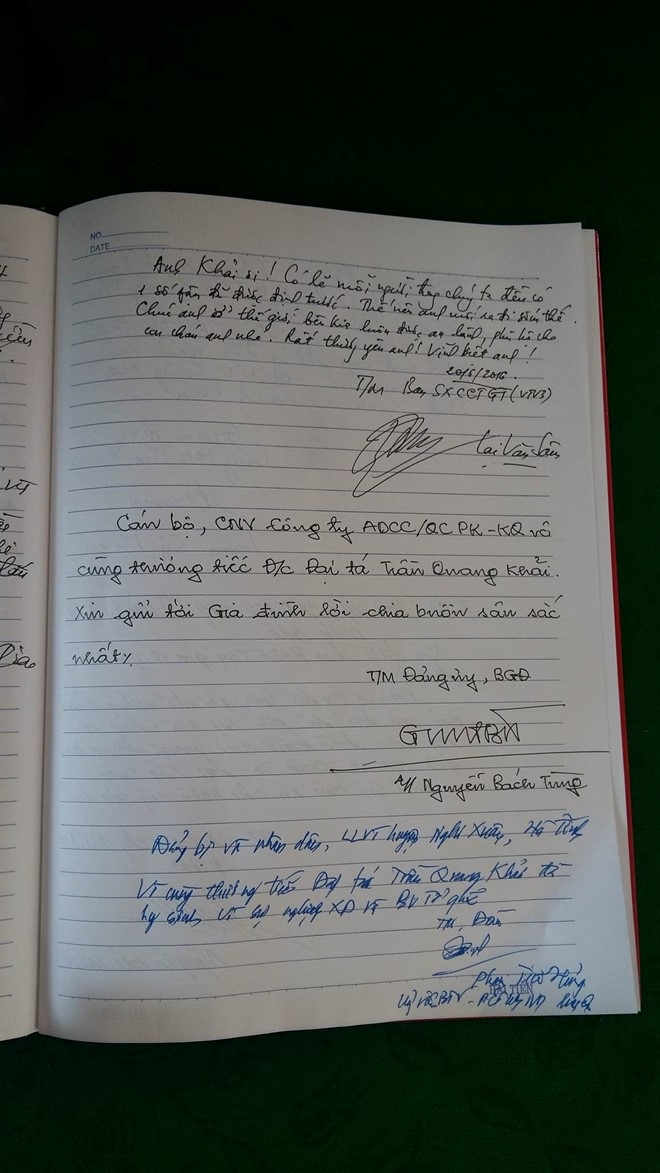 NO.
DATE
Anh Khải ơi! Có lẽ mỗi người trong chúng ta đều có
1 số phận đã được định trước. Thế nên anh mới ra đi sớm thế.
Chúc anh ở thế giới bên kia luôn được an lành, phù hộ cho
con cháu anh nhé. Rất thương yêu anh! Vĩnh biệt anh!
20/6/2016
T/m Ban SXCCTGT (VTV3)
Lại Văn Sâm
Cán bộ, CNV Công ty ADCC/QC PK-KQ vô
cùng thương tiếc Đ/c Đại tá Trần Quang Khải.
Xin gửi tới Gia đình lời chia buồn sâu sắc
nhất.
T/M Đảng ủy, BGĐ
Nguyễn Bách Tùng
Đảng bộ và nhân dân, LLVT huyện Nghi Xuân, Hà Tĩnh
Vô cùng thương tiếc Đại tá Trần Quang Khải đã
hy sinh vì sự nghiệp XD và BV Tổ quốc
TM, Đoàn
HẢI TIẾN